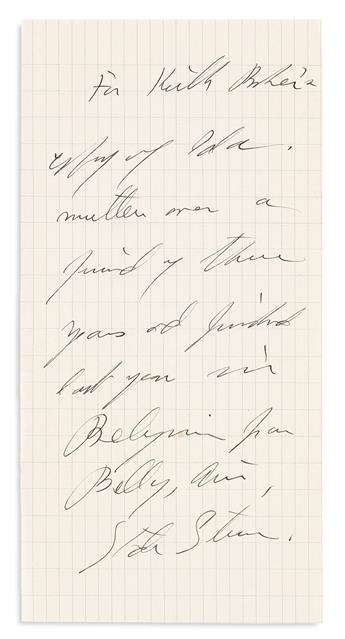 For Keith Baker's
copy of Ida.
written over a
period of three
years and finished
last year in
Bilignin par
Belley, Ain,
Stein.